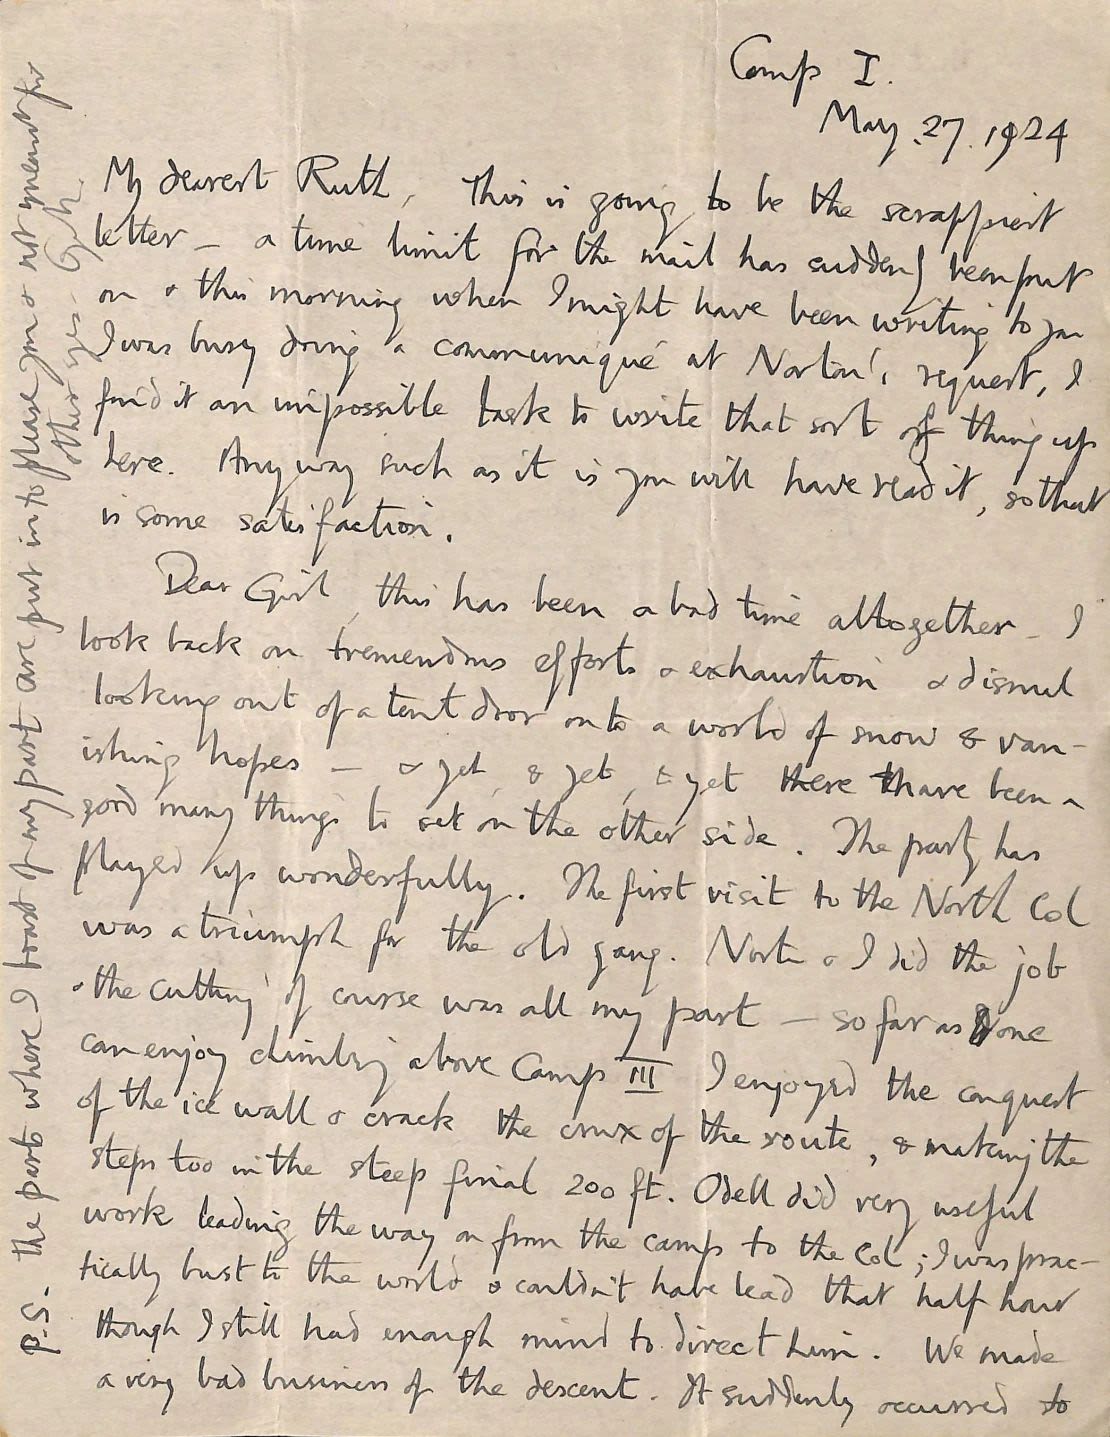 Camp I.
May. 27. 1924
My dearest Ruth, This is going to be the scrappiest
letter — a time limit for the mail has suddenly been put
on & this morning when I might have been writing to you
I was busy doing a communiqué at Norton's request, I
find it an impossible task to write that sort of thing up
here. Anyway such as it is you will have read it, so that
is some satisfaction.
Dear Girl, this has been a bad time altogether — I
look back on tremendous efforts & exhaustion & dismal
looking out of a tent door on to a world of snow & van-
ishing hopes — & yet, & yet, & yet there have been a
good many things to set on the other side. The party has
played up wonderfully. The first visit to the North Col
was a triumph for the old gang. Norton & I did the job
& the cutting of course was all my part — so far as one
can enjoy climbing above Camp III I enjoyed the conquest
of the ice wall & crack the crux of the route, & making the
steps too in the steep final 200 ft. Odell did very useful
work leading the way on from the camp to the Col; I was prac-
tically bust to the world & couldn't have lead that half hour
though I still had enough mind to direct him. We made
a very bad business of the descent. It suddenly occurred to
P.S. The parts where I boast of my part are put in to please you & not meant for
other eyes. G.L.M.